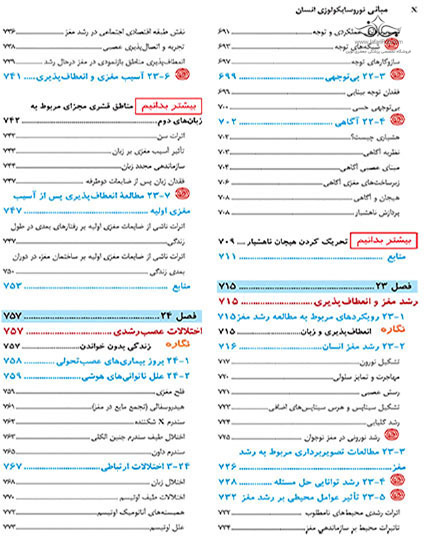 X مبانی نوروسایکولوژی انسان
عملکردی و توجه ۶۹۱
شبکه‌های توجه ۶۹۳
سازوکارهای توجه ۶۹۷
۲۲-۳ بی‌توجهی ۶۹۹
فقدان توجه بینایی ۶۹۹
بی‌توجهی حسی ۷۰۰
۲۲-۴ آگاهی ۷۰۲
هشیاری چیست؟ ۷۰۲
نظریه آگاهی ۷۰۳
مبنای عصبی آگاهی ۷۰۴
زیرساخت‌های مغزی آگاهی ۷۰۶
هیجان و آگاهی ۷۰۸
پردازش ناهشیار ۷۰۸
بیشتر بدانیم تحریک کردن هیجان ناهشیار ۷۰۹
منابع ۷۱۱
فصل ۲۳ ۷۱۵
رشد مغز و انعطاف‌پذیری ۷۱۵
۲۳-۱ رویکردهای مربوط به مطالعه رشد مغز ۷۱۵
نگاره انعطاف‌پذیری و زبان ۷۱۵
۲۳-۲ رشد مغز انسان ۷۱۶
تشکیل نورون ۷۱۷
مهاجرت و تمایز سلولی ۷۲۰
رسش عصبی ۷۲۱
تشکیل سیناپس و هرس سیناپس‌های اضافی ۷۲۲
رشد گلیایی ۷۲۴
رشد نورونی در مغز نوجوان ۷۲۵
۲۳-۳ مطالعات تصویربرداری مربوط به رشد
مغز ۷۲۶
۲۳-۴ رشد توانایی حل مسئله ۷۲۸
۲۳-۵ تأثیر عوامل محیطی بر رشد مغز ۷۳۲
اثرات رشدی محیط‌های نامطلوب ۷۳۲
تاثیرات محیط بر سازماندهی مغز ۷۳۴
نقش طبقه اقتصادی اجتماعی در رشد مغز ۷۳۶
تجربه و اتصال‌پذیری عصبی ۷۳۸
انعطاف‌پذیری مناطق بازنمودی در مغز درحال رشد ۷۳۹
۲۳-۶ آسیب مغزی و انعطاف‌پذیری ۷۴۱
بیشتر بدانیم مناطق قشری مجزای مربوط به
زبان‌های دوم ۷۴۲
اثرات سن ۷۴۲
تأثیر آسیب مغزی بر زبان ۷۴۳
سازماندهی مجدد زبان ۷۴۴
فقدان زبان پس از ضایعات دوطرفه ۷۴۷
۲۳-۷ مطالعۀ انعطاف‌پذیری پس از آسیب
مغزی اولیه ۷۴۷
اثرات ناشی از ضایعات مغزی اولیه بر رفتارهای بعدی در طول
زندگی ۷۴۷
اثرات ناشی از ضایعات مغزی اولیه بر ساختمان مغز، در دوران
بعدی زندگی ۷۵۰
منابع ۷۵۳
فصل ۲۴ ۷۵۷
اختلالات عصب‌رشدی ۷۵۷
نگاره زندگی بدون خواندن ۷۵۷
۲۴-۱ بروز بیماری‌های عصب‌تحولی ۷۵۸
۲۴-۲ علل ناتوانی‌های هوشی ۷۵۹
فلج مغزی ۷۵۹
هیدروسفالی (تجمع مایع در مغز) ۷۶۱
سندرم X شکننده ۷۶۲
اختلال طیف سندرم جنین الکلی ۷۶۳
سندرم داون ۷۶۵
۲۴-۳ اختلالات ارتباطی ۷۶۷
اختلال زبان ۷۶۸
اختلالات طیف اوتیسم ۷۷۰
همبسته‌های آناتومیک اوتیسم ۷۷۲
علل اوتیسم ۷۷۳